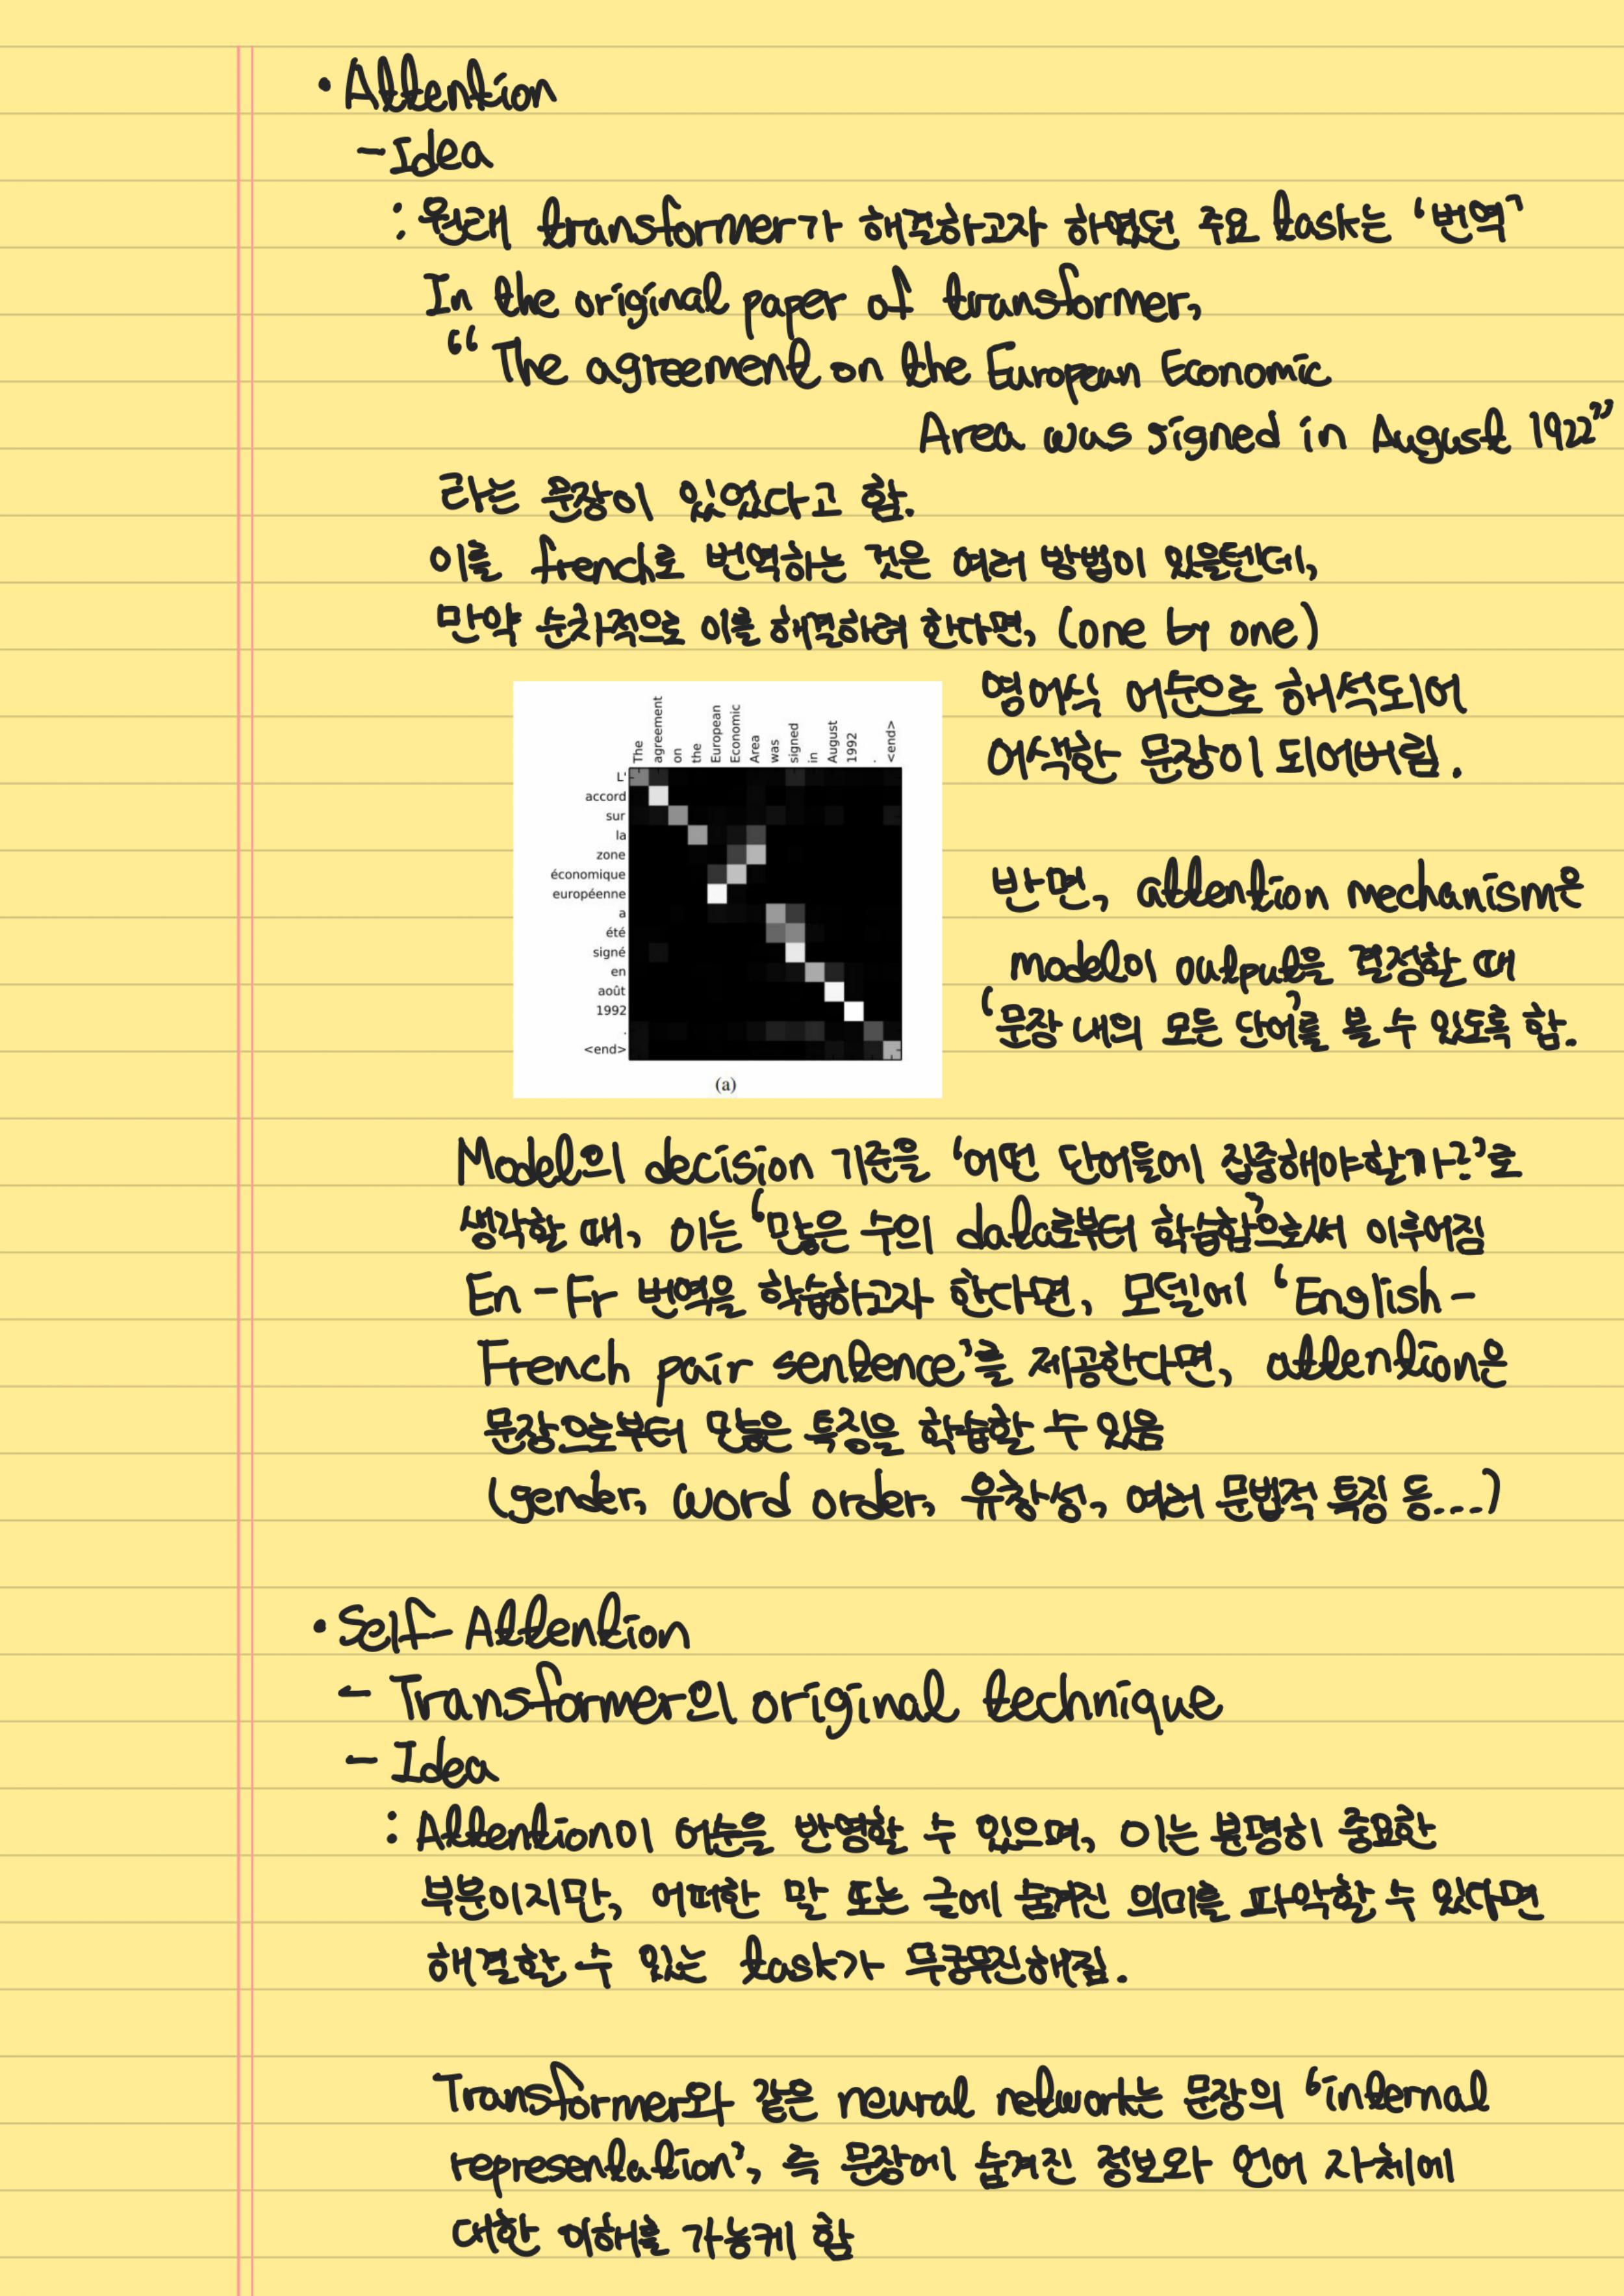 • Attention
- Idea
: 원래 transformer가 해결하고자 하였던 주요 task는 ‘번역’
In the original paper of transformer,
“The agreement on the European Economic
Area was signed in August 1922”
라는 문장이 있었다고 함.
이를 french로 번역하는 것은 여러 방법이 있을텐데,
만약 순차적으로 이를 해결하려 한다면, (one by one)
영어식 어순으로 해석되어
어색한 문장이 되어버림.
The agreement on the European Economic Area was signed in August 1992 . <end>
L'
accord
sur
la
zone
économique
européenne
a
été
signé
en
août
1992
.
<end>
(a)
반면, attention mechanism은
model이 output을 결정할 때
‘문장 내의 모든 단어’를 볼 수 있도록 함.
Model의 decision 기준을 ‘어떤 단어들에 집중해야할까?’로
생각할 때, 이는 ‘많은 수의 data로부터 학습함’으로써 이루어짐
En - Fr 번역을 학습하고자 한다면, 모델에 ‘English -
French pair sentence’를 제공한다면, attention은
문장으로부터 많은 특징을 학습할 수 있음
(gender, word order, 유창성, 여러 문법적 특징 등....)
• Self-Attention
- Transformer의 original technique
- Idea
: Attention이 어순을 반영할 수 있으며, 이는 분명히 중요한
부분이지만, 어떠한 말 또는 글에 숨겨진 의미를 파악할 수 있다면
해결할 수 있는 task가 무궁무진해짐.
Transformer와 같은 neural network는 문장의 ‘internal
representation’, 즉 문장에 숨겨진 정보와 언어 자체에
대한 이해를 가능케 함